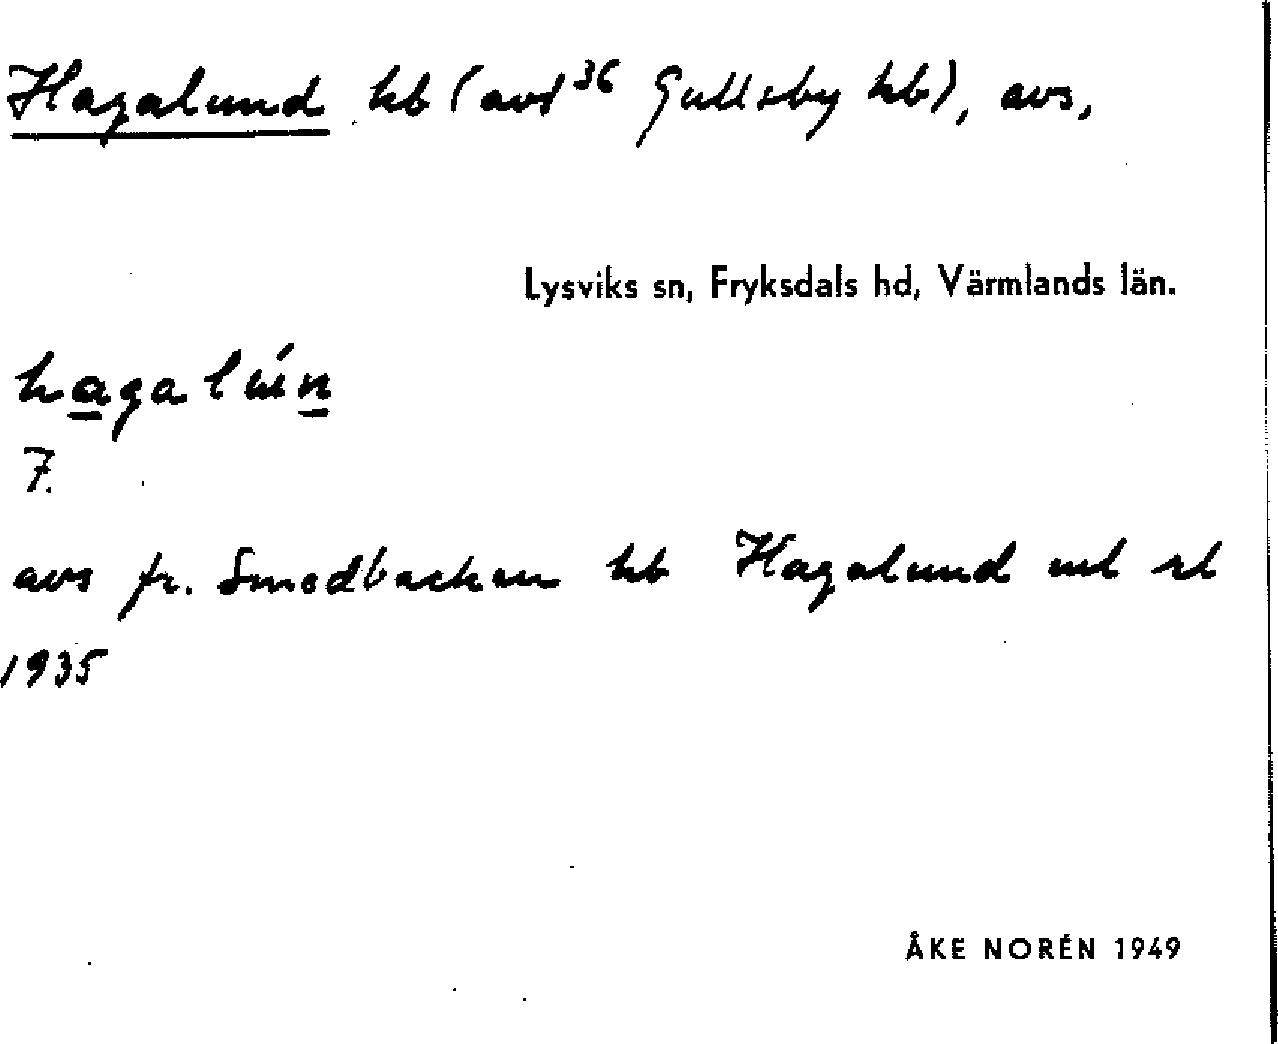 Hagalund hb (avs 36 Gullsby hb), avs,
Lysviks sn, Fryksdals hd, Värmlands län.
hagalún
7.
avs fr. Smedbacken hb Hagalund enl rl
1935
ÅKE NORÉN 1949